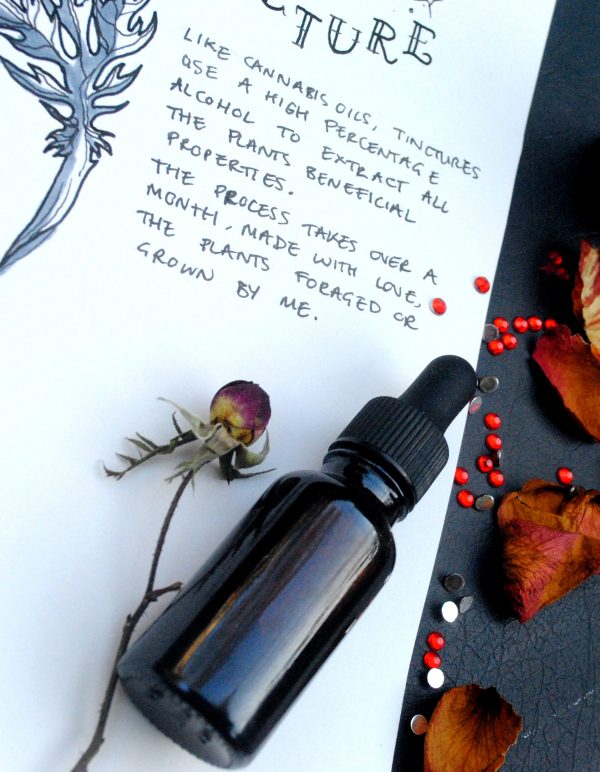 CTURE
LIKE CANNABIS OILS, TINCTURES
USE A HIGH PERCENTAGE
ALCOHOL TO EXTRACT ALL
THE PLANTS BENEFICIAL
PROPERTIES.
THE PROCESS TAKES OVER A
MONTH, MADE WITH LOVE,
THE PLANTS FORAGED OR
GROWN BY ME.